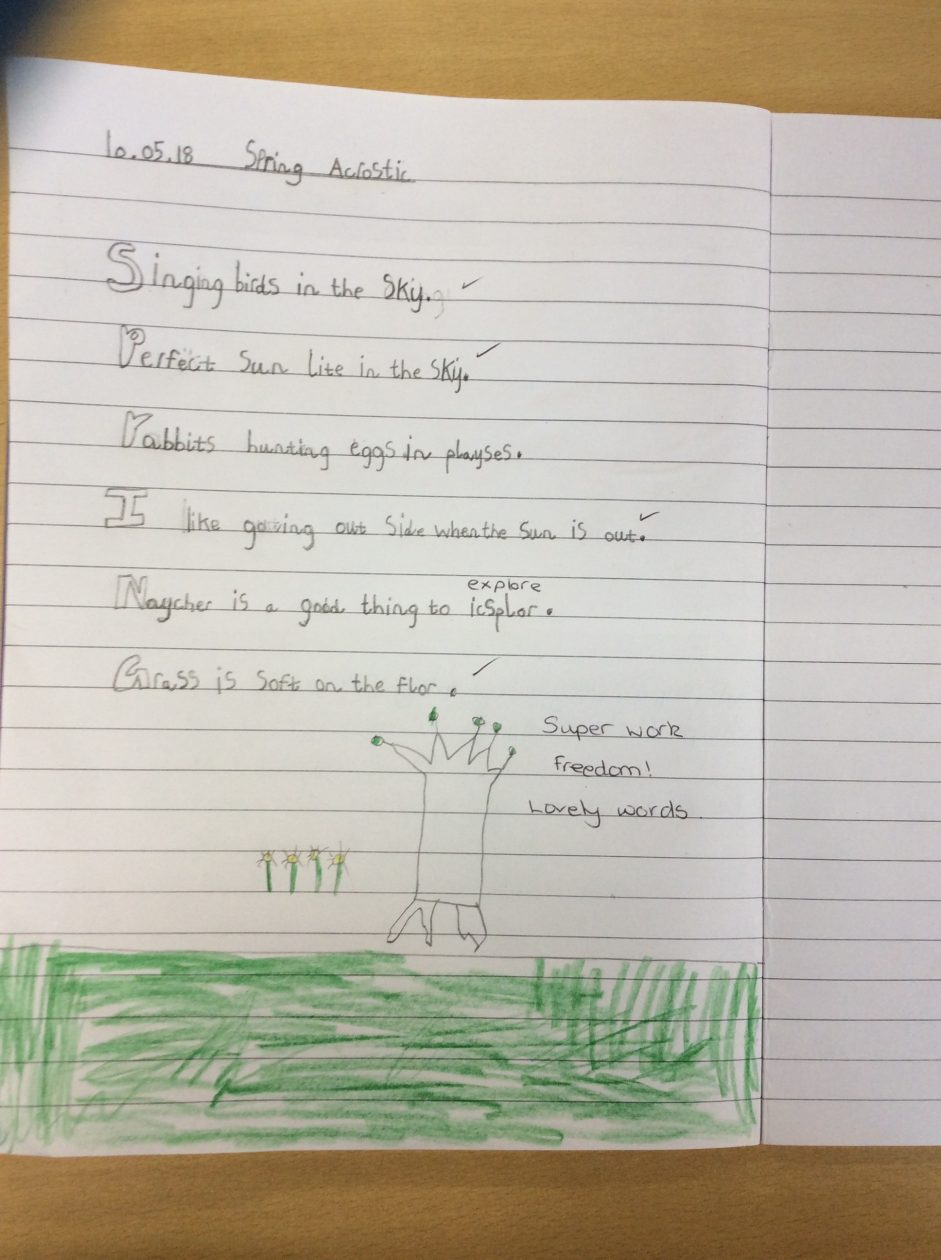 10.05.18 Spring Acrostic
Singing birds in the Sky.
Perfect Sun lite in the Sky.
rabbits hunting eggs in playses.
I like going out Side when the Sun is out.
explore
Naycher is a good thing to icsplor.
Grass is Soft on the flor.
Super work
freedom!
Lovely words.